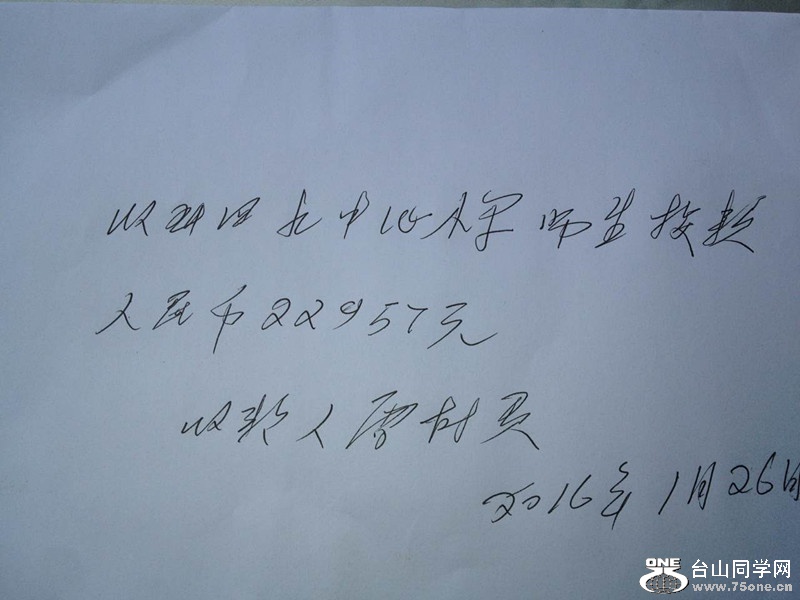 收到四九中心小学师生捐款
人民币22957元
收款人雷树
2016年1月26日
ONE
台山同学网
www.75one.cn